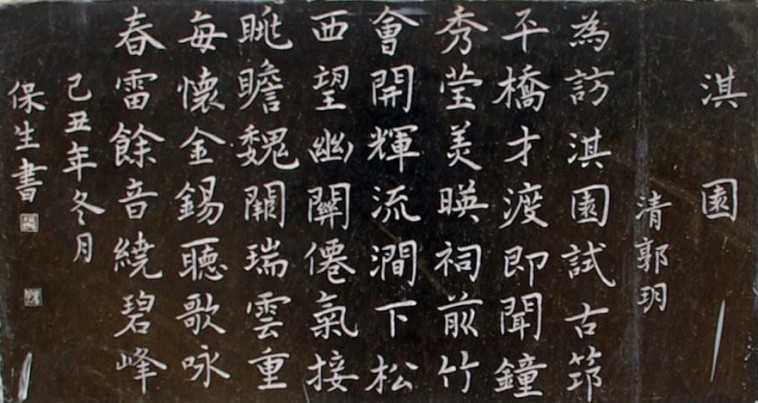 淇園
清郭玥
為訪淇園試古筇
平橋才渡即聞鐘
秀莹美暎祠前竹
會開輝流澗下松
西望幽關僊氣接
眺瞻魏闕瑞雲重
每懷金錫聽歌咏
春雷餘音繞碧峰
己丑年冬月
保生書